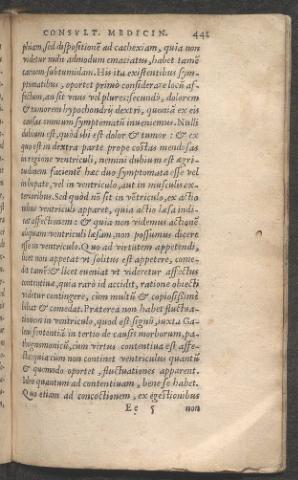 CONSVLT. MEDICIN. 441
phiam, sed dispositionẽ ad cachexiam, quia non
videtur multũ admodum emaciatus, habet tamẽ
carnem subtumidam. His ita existentibus sym-
ptomatibus, oportet primò considerare locũ af-
fectum, an sit vnus vel plures: secundò, dolorem
& tumorem hypochondrij dextri, quoniã ex eis
cõsilia morum symptomatũ inueniemus. Nulli
dubium est, quòd ibi est dolor & tumor: & ex
quo est in dextra parte prope costas mendosas
in regione ventriculi, nemini dubium est ægri-
tudinem facientẽ hæc duo symptomata esse vel
in hepate, vel in ventriculo, aut in musculis ex-
terioribus. Sed quòd nõ sit in vẽtriculo, ex actio
nibus ventriculi apparet, quia actio læsa indi-
cat affectionem: & quia non videmus actionẽ
aliquam ventriculi læsam, non possumus dicere
esse in ventriculo. Quo ad virtutem appetendi,
licet non appetat vt solitus est appetere, come-
dit tamẽ: & licet eueniat vt videretur affectus
contentiua, quia rarò id accidit, ratione obiecti
videtur contingere, cùm multũ & copiosissimè
bibat & comedat. Præterea non habet fluctua-
tionem in ventriculo, quod est signũ, iuxta Ga-
leni sententiã in tertio de causis morborum, pa-
thognomonicũ, cùm virtus contentiua est affe-
cta: quia cùm non continet ventriculus quantũ
& quomodo oportet, fluctuationes apparent.
Ideo quantum ad contentiuam, bene se habet.
Quo etiam ad concoctionem, ex egestionibus
Ee 5 non